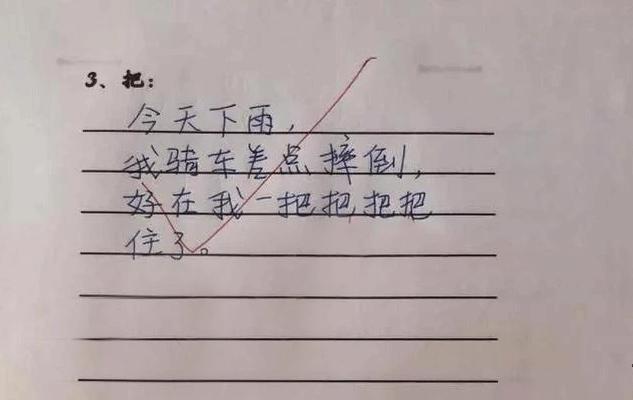 3、把:
今天下雨，
我骑车差点摔倒，
好在我一把把把把
住了。